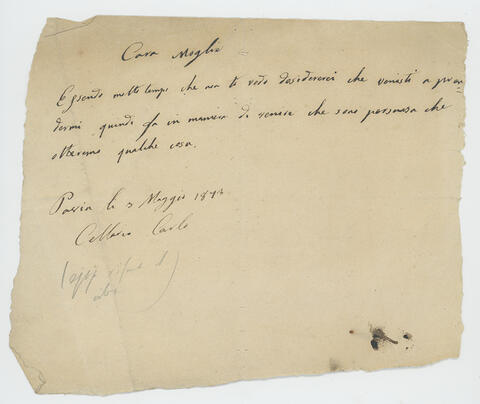 Cara Moglie
Essendo molto tempo che non ti vedo desidererei che venisti a pren=
dermi quindi fa in maniera di venire che sono persuasa che
otteremo qualche cosa.
Pavia li 3 Maggio 187
Carlo
(oggi rifiuta il
cibo)